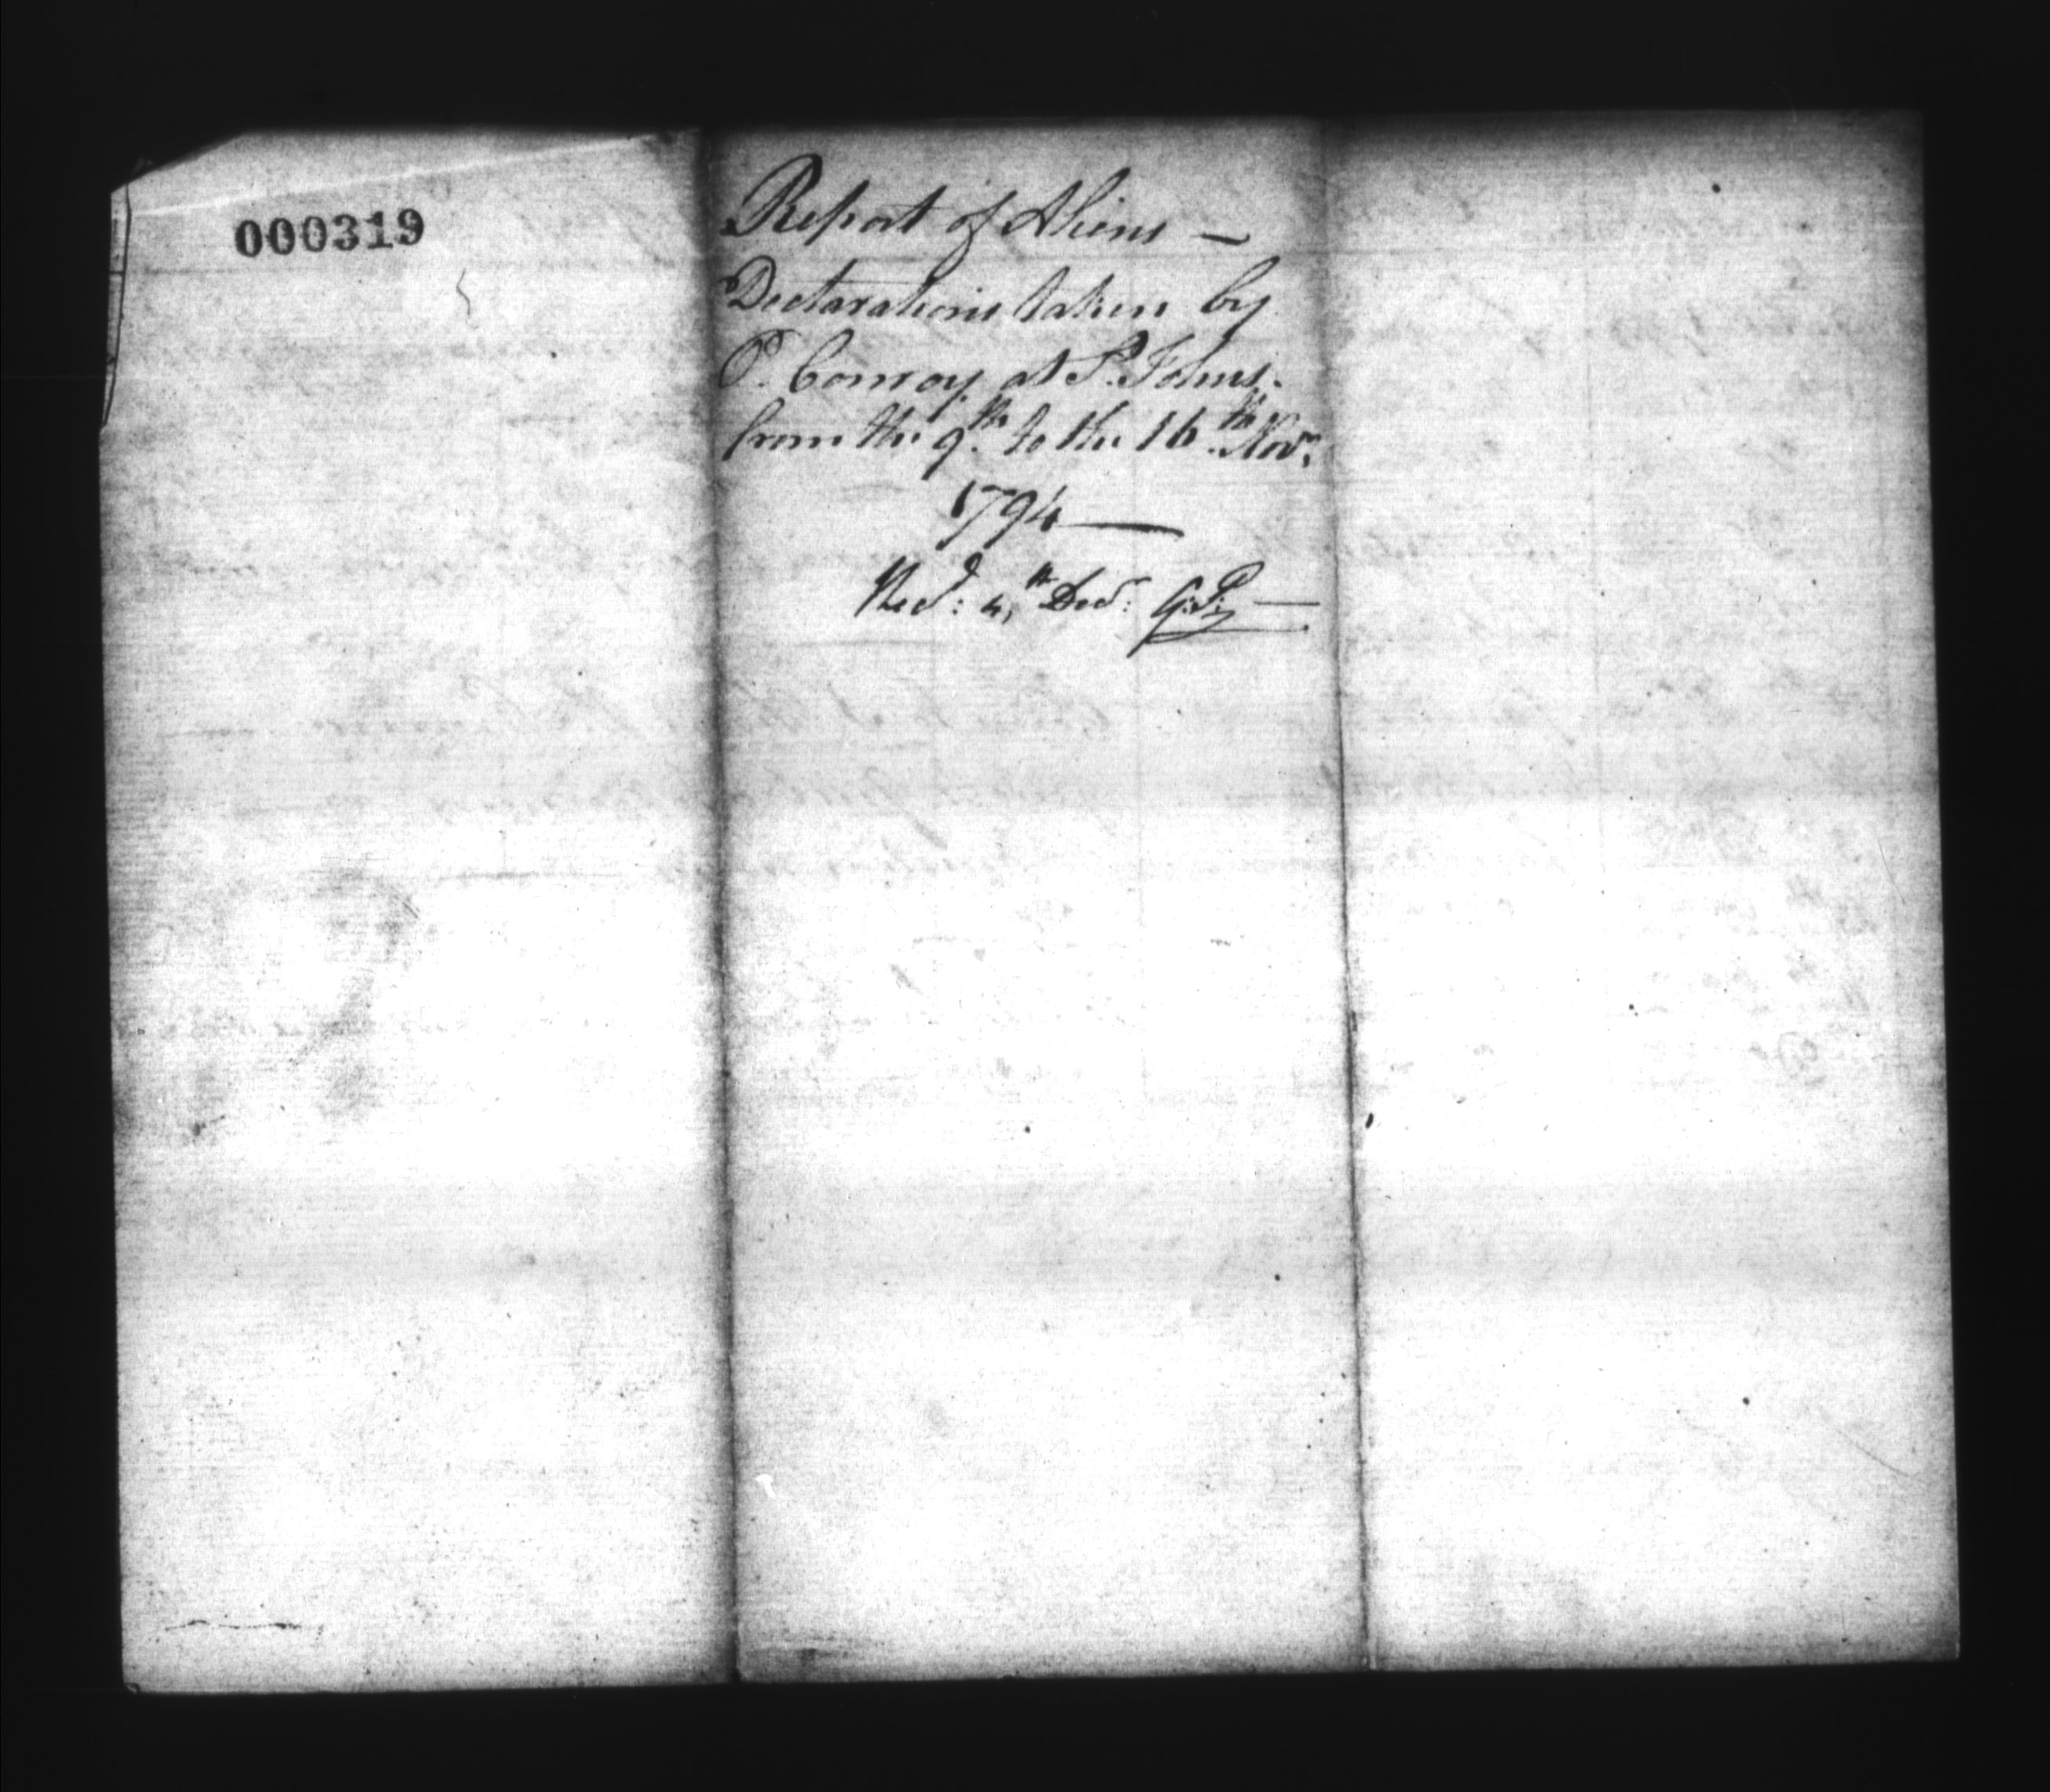 000319
Report of Aliens —
Declarations taken by
P. Conroy at S. Johns.
from the 9th. to the 16th. Nov.
1794
Recd: 4th Decr: G:P: